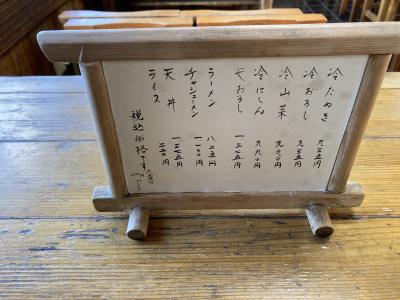 冷たぬき 九三五円
冷おろし 九三五円
冷山菜 九九〇円
冷にしん 九九〇円
天おろし 一三七五円
ラーメン 八二五円
チャシューメン 一一〇〇円
天丼 一三七五円
ライス 二二〇円
税込価格です